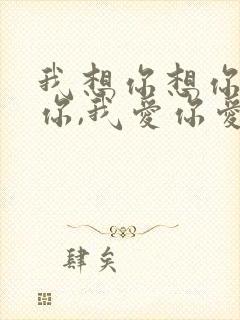 我想你想你
你,我爱你爱
肆矣